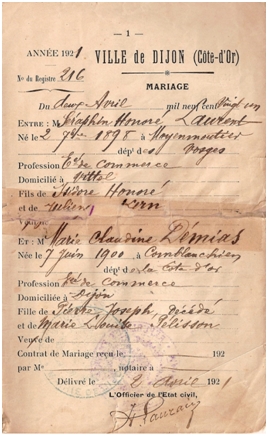 — 1 —
ANNÉE 1921. VILLE de DIJON (Côte-d'Or)
No du Registre 216 MARIAGE
Du deux Avril mil neuf cent Vingt un
ENTRE : M Séraphin Honoré Laurent
Né le 2 7bre 1898 à Moyenmoutier
dépt des Vosges
Profession Eé de commerce
Domicilié à Vittel
Fils de Isidore Honoré
et de
ET : Melle Marie Claudine Dimias
Née le 7 juin 1900 à Comblanchien
dépt de la Côte d'or
Profession Eée de commerce
Domiciliée à Dijon
Fille de Pierre Joseph décédé
et de Marie Pélisson
Veuve de
Contrat de Mariage reçu le, 192
par Me , notaire à
Délivré le 2 avril 1921
L'Officier de l'Etat civil,